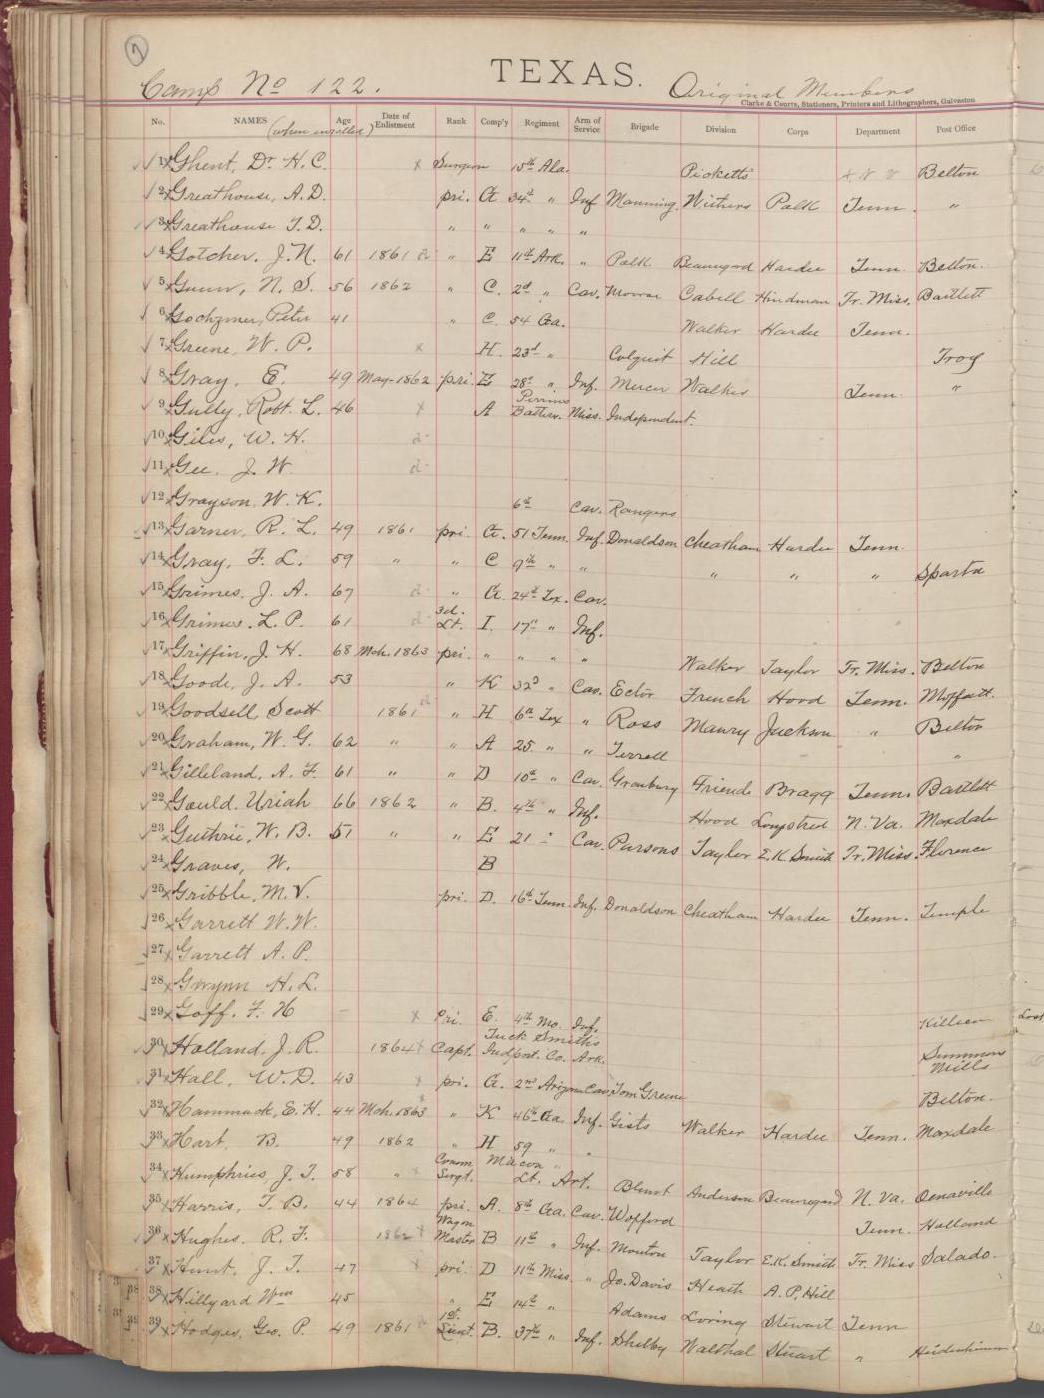 7
Camp No 122. TEXAS. Original Members
Clarke & Courts, Stationers, Printers and Lithographers, Galveston
No. NAMES (when enrolled) Age Date of Enlistment Rank Comp'y Regiment Arm of Service Brigade Division Corps Department Post Office
1 Ghent, Dr. H.C. x Surgeon 15th Ala. Picketts Belton
2 Greathouse, A.D. pri. G 34th " Inf Manning. Withers Polk Tenn. "
3 Greathouse T.D. " " " " "
4 Gotcher, J.N. 61 1861 " E 11th Ark. " Polk Beauregard Hardee Tenn. Belton.
5 Gunn, N.S. 56 1862 " C. 2d " Cav. Monroe Cabell Hindman Tr. Miss. Bartlett
6 Peter 41 " C. 54 Ga. Walker Hardee Tenn.
7 Greene, W.P. x H. 23d " Colquit Hill Troy
8 Gray, E. 49 May-1862 pri. E 28th " Inf. Mercer Walker Tenn. "
9 Gully, Robt. L. 46 x A Perrins Battery. Miss. Independent.
10 Giles, W.H. d
11 Gee, J.W. d
12 Grayson, W.K. 6th Cav. Rangers
13 Garner, R.L. 49 1861 pri. G. 51 Tenn. Inf. Donaldson Cheatham Hardee Tenn.
14 Gray, F.L. 59 " " C 9th " " " " " Sparta
15 Grimes, J.A. 67 d " G. 24th Tex. Cav.
16 Grimes, L.P. 61 d 3d. Lt. I. 17th " Inf.
17 Griffin, J.H. 68 Mch. 1863 pri. " " " " Walker Taylor Tr. Miss. Belton
18 Goode, J.A. 53 " K 32d " Cav. Ector French Hood Tenn. Moffatt.
19 Goodsell, Scott 1861 d " H 6th Tex " Ross Maury Jackson " Belton
20 Graham, W.G. 62 " " A 25 " " Terrell "
21 Gilleland, A.F. 61 " " D 10th " Cav. Granbury Friends Bragg Tenn. Bartlett
22 Gould, Uriah 66 1862 " B. 4th " Inf. Hood Longstreet N. Va. Maxdale
23 Guthrie, W.B. 51 " " E 21 " Cav. Parsons Taylor E.K. Smith Tr. Miss. Florence
24 Graves, W. B
25 Gribble, M.V. pri. D. 16th Tenn. Inf. Donaldson Cheatham Hardee Tenn. Temple
26 Garrett W.W.
27 Garrett A.P.
28 Gwynn H.L.
29 Goff, F.H x Pri. E. 4th Mo. Inf. Killeen
30 Holland, J.R. 1864 Capt. Tuck Smiths Indpnt. Co. Ark. Summers Mills
31 Hall, W.D. 43 x pri. G. 2nd Arizona Cav Tom Greene Belton.
32 Hammack, E.H. 44 Mch. 1863 " K 46th Ga. Inf. Gists Walker Hardee Tenn. Maxdale
33 Hart, B. 49 1862 " H 59 " "
34 Humphries, J.T. 58 " Comm Sergt. Macon " Lt. Art. Blount Anderson Beauregard N. Va. Oenaville
35 Harris, T.B. 44 1864 pri. A. 8th Ga. Cav. Wofford Tenn. Holland
36 Hughes, R.F. 1862 Wagon Master B 11th " Inf. Mouton Taylor E.K. Smith Tr. Miss Salado.
37 Hunt, J.T. 47 x pri. D 11th Miss. " Jo. Davis Heath A.P. Hill
38 Hillyard Wm 45 " E 14th " Adams Loring Stewart Tenn
39 Hodges, Geo. P. 49 1861 1st. Lieut. B. 37th " Inf. Shelby Walthal Stuart " Heidenheimer